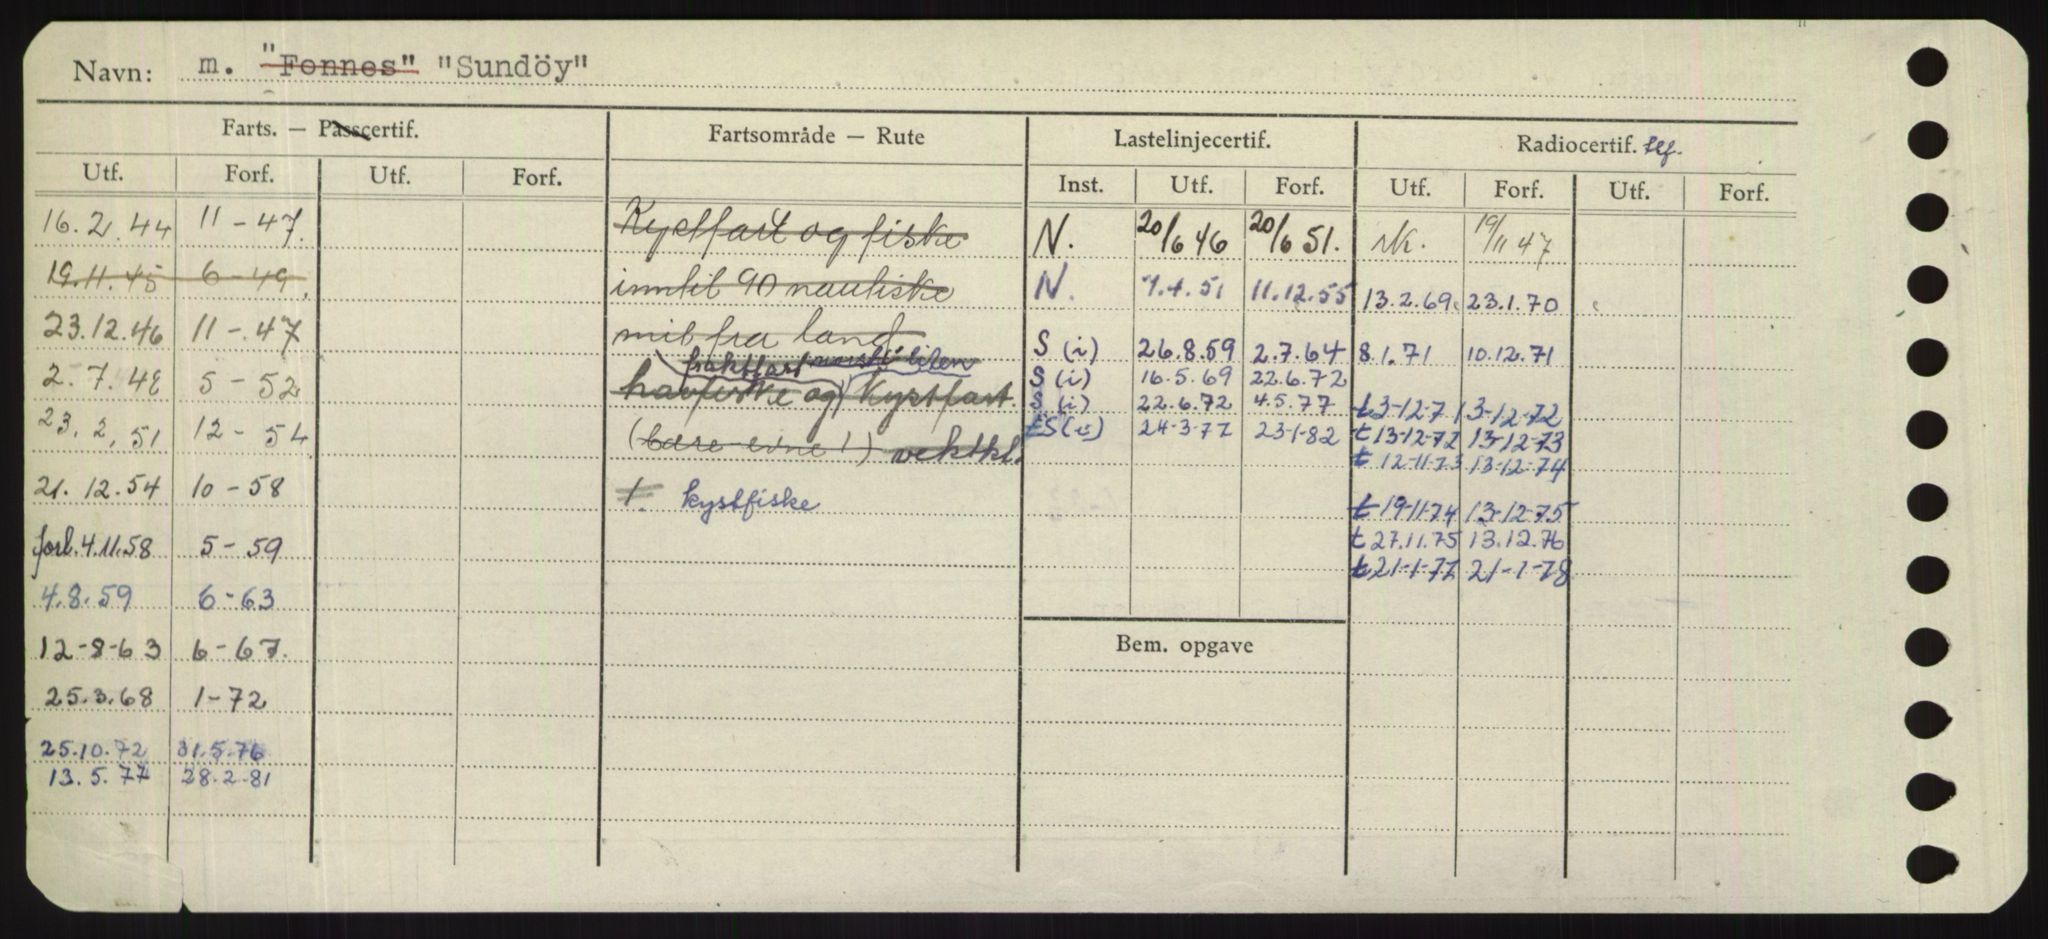 Navn: m. "Fonnes" "Sundöy"
Farts. — Passcertif. Fartsområde — Rute Lastelinjecertif. Radiocertif. tlf.
Utf. Forf. Utf. Forf. Inst. Utf. Forf. Utf. Forf. Utf. Forf.
16.2.44 11-47. Kystfart og fiske N. 20/6 46 20/6 51. 19/11 47
19.11.45 6-49. inntil 90 nautiske N. 7.4.51 11.12.55 13.2.69 23.1.70
23.12.46 11-47 mil fra land S (i) 26.8.59 2.7.64 8.1.71 10.12.71
fraktfart norsk liten
S (i) 16.5.69 22.6.72
2.7.48 5-52 havfiske og kystfart. S (i) 22.6.72 4.5.77 t 3-12-71 3-12-72
23.2.51 12-54 (bære evne 1) vektkl. 24-3-77 23-1-82 t 13-12-72 13-12-73
t 12-11-73 13-12-74
21.12.54 10-58 1. kystfiske t 19-11-74 13-12-75
forl. 4.11.58 5-59 t 27.11.75 13.12.76
t 21-1-77 21-1-78
4.8.59 6-63
12-8-63 6-67. Bem. opgave
25.3.68 1-72
25.10.72 31.5.76
13.5.77 28.2.81